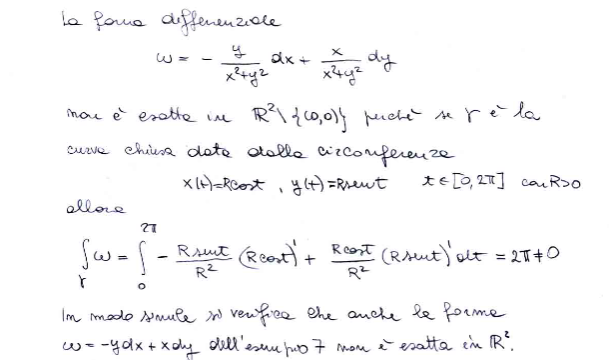 La forma differenziale
ω = - y/(x²+y²) dx + x/(x²+y²) dy
non è esatta in ℝ²\{(0,0)} perché se γ è la
curva chiusa data dalla circonferenza
x(t)=Rcost , y(t)=Rsent t∈[0,2π] con R>0
allora
∫_γ ω = ∫_0^{2π} - Rsent/R² (Rcost)' + Rcost/R² (Rsent)' dt = 2π ≠ 0
In modo simile si verifica che anche la forma
ω = -ydx + xdy dell'esempio 7 non è esatta in ℝ².